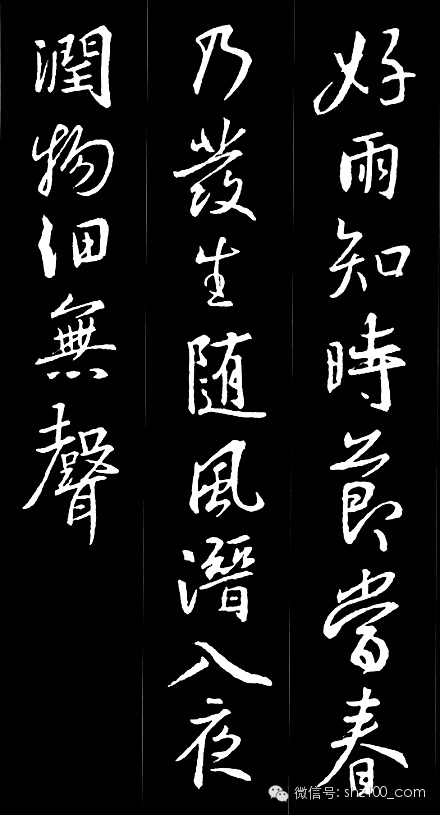 好雨知時節當春
乃發生随風潛入夜
潤物細無聲
微信号: shz100_com